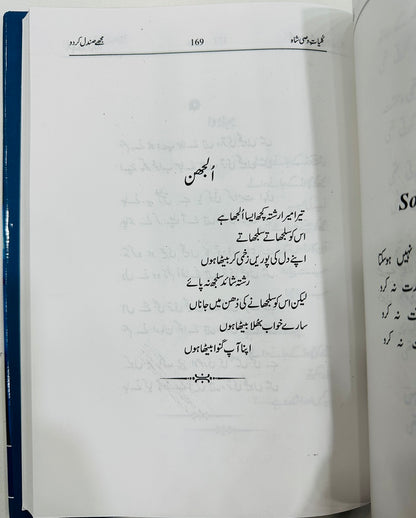 کلیاتِ وصی شاہ
169
مجھے صندل کر دو
اُلجھن
تیرا میرا رشتہ کچھ ایسا اُلجھا ہے
اس کو سلجھاتے سلجھاتے
اپنے دل کی پوریں زخمی کر بیٹھا ہوں
رشتہ شائد سلجھ نہ پائے
لیکن اس کو سلجھانے کی دُھن میں جاناں
سارے خواب بھلا بیٹھا ہوں
اپنا آپ گنوا بیٹھا ہوں
So
نہیں ہو سکتا
نہ کرد
نہ کرد
نہ کرد